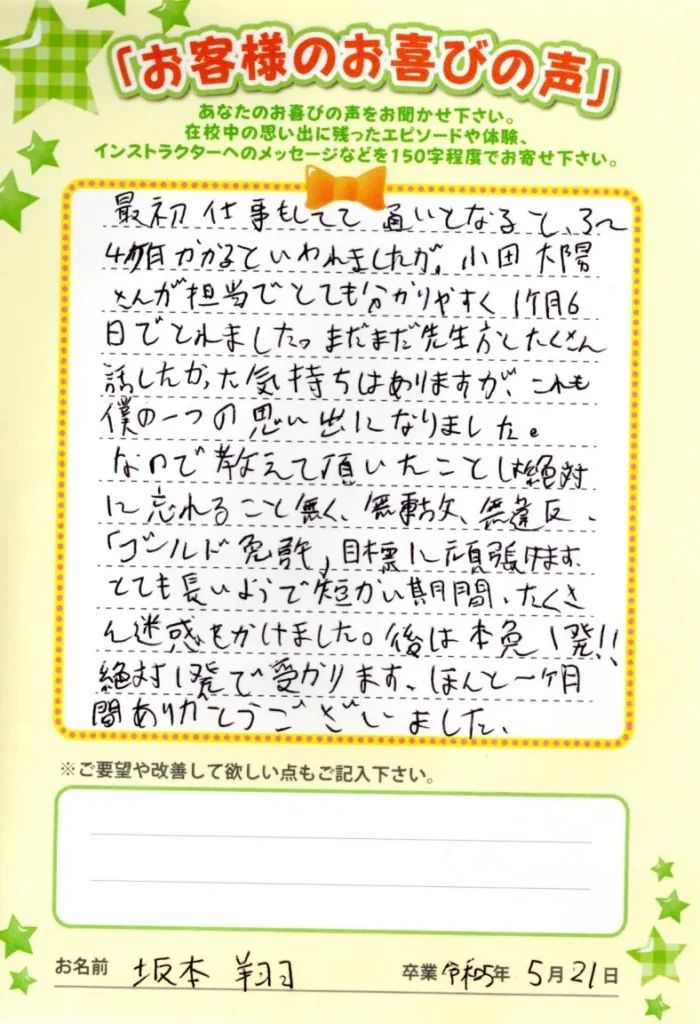 「お客様のお喜びの声」
あなたのお喜びの声をお聞かせ下さい。
在校中の思い出に残ったエピソードや体験、
インストラクターへのメッセージなどを150字程度でお寄せ下さい。
最初 仕事もしてて 通いとなると、3〜
4ヶ月かかるといわれましたが、小田 太陽
さんが担当でとても分かりやすく 1ヶ月6
日でとれました。まだまだ先生方とたくさん
話したかった気持ちはありますが、これも
僕の一つの思い出になりました。
なので教えて頂いたことは絶対
に忘れること無く、無事故、無違反、
「ゴールド免許」目標に頑張ります。
とても長いようで短かい期間、たくさ
ん迷惑をかけました。後は本免1発!!
絶対1発で受かります。ほんと一ヶ月
間ありがとうございました。
※ご要望や改善して欲しい点もご記入下さい。
お名前 坂本 翔 卒業 令和5年 5月21日